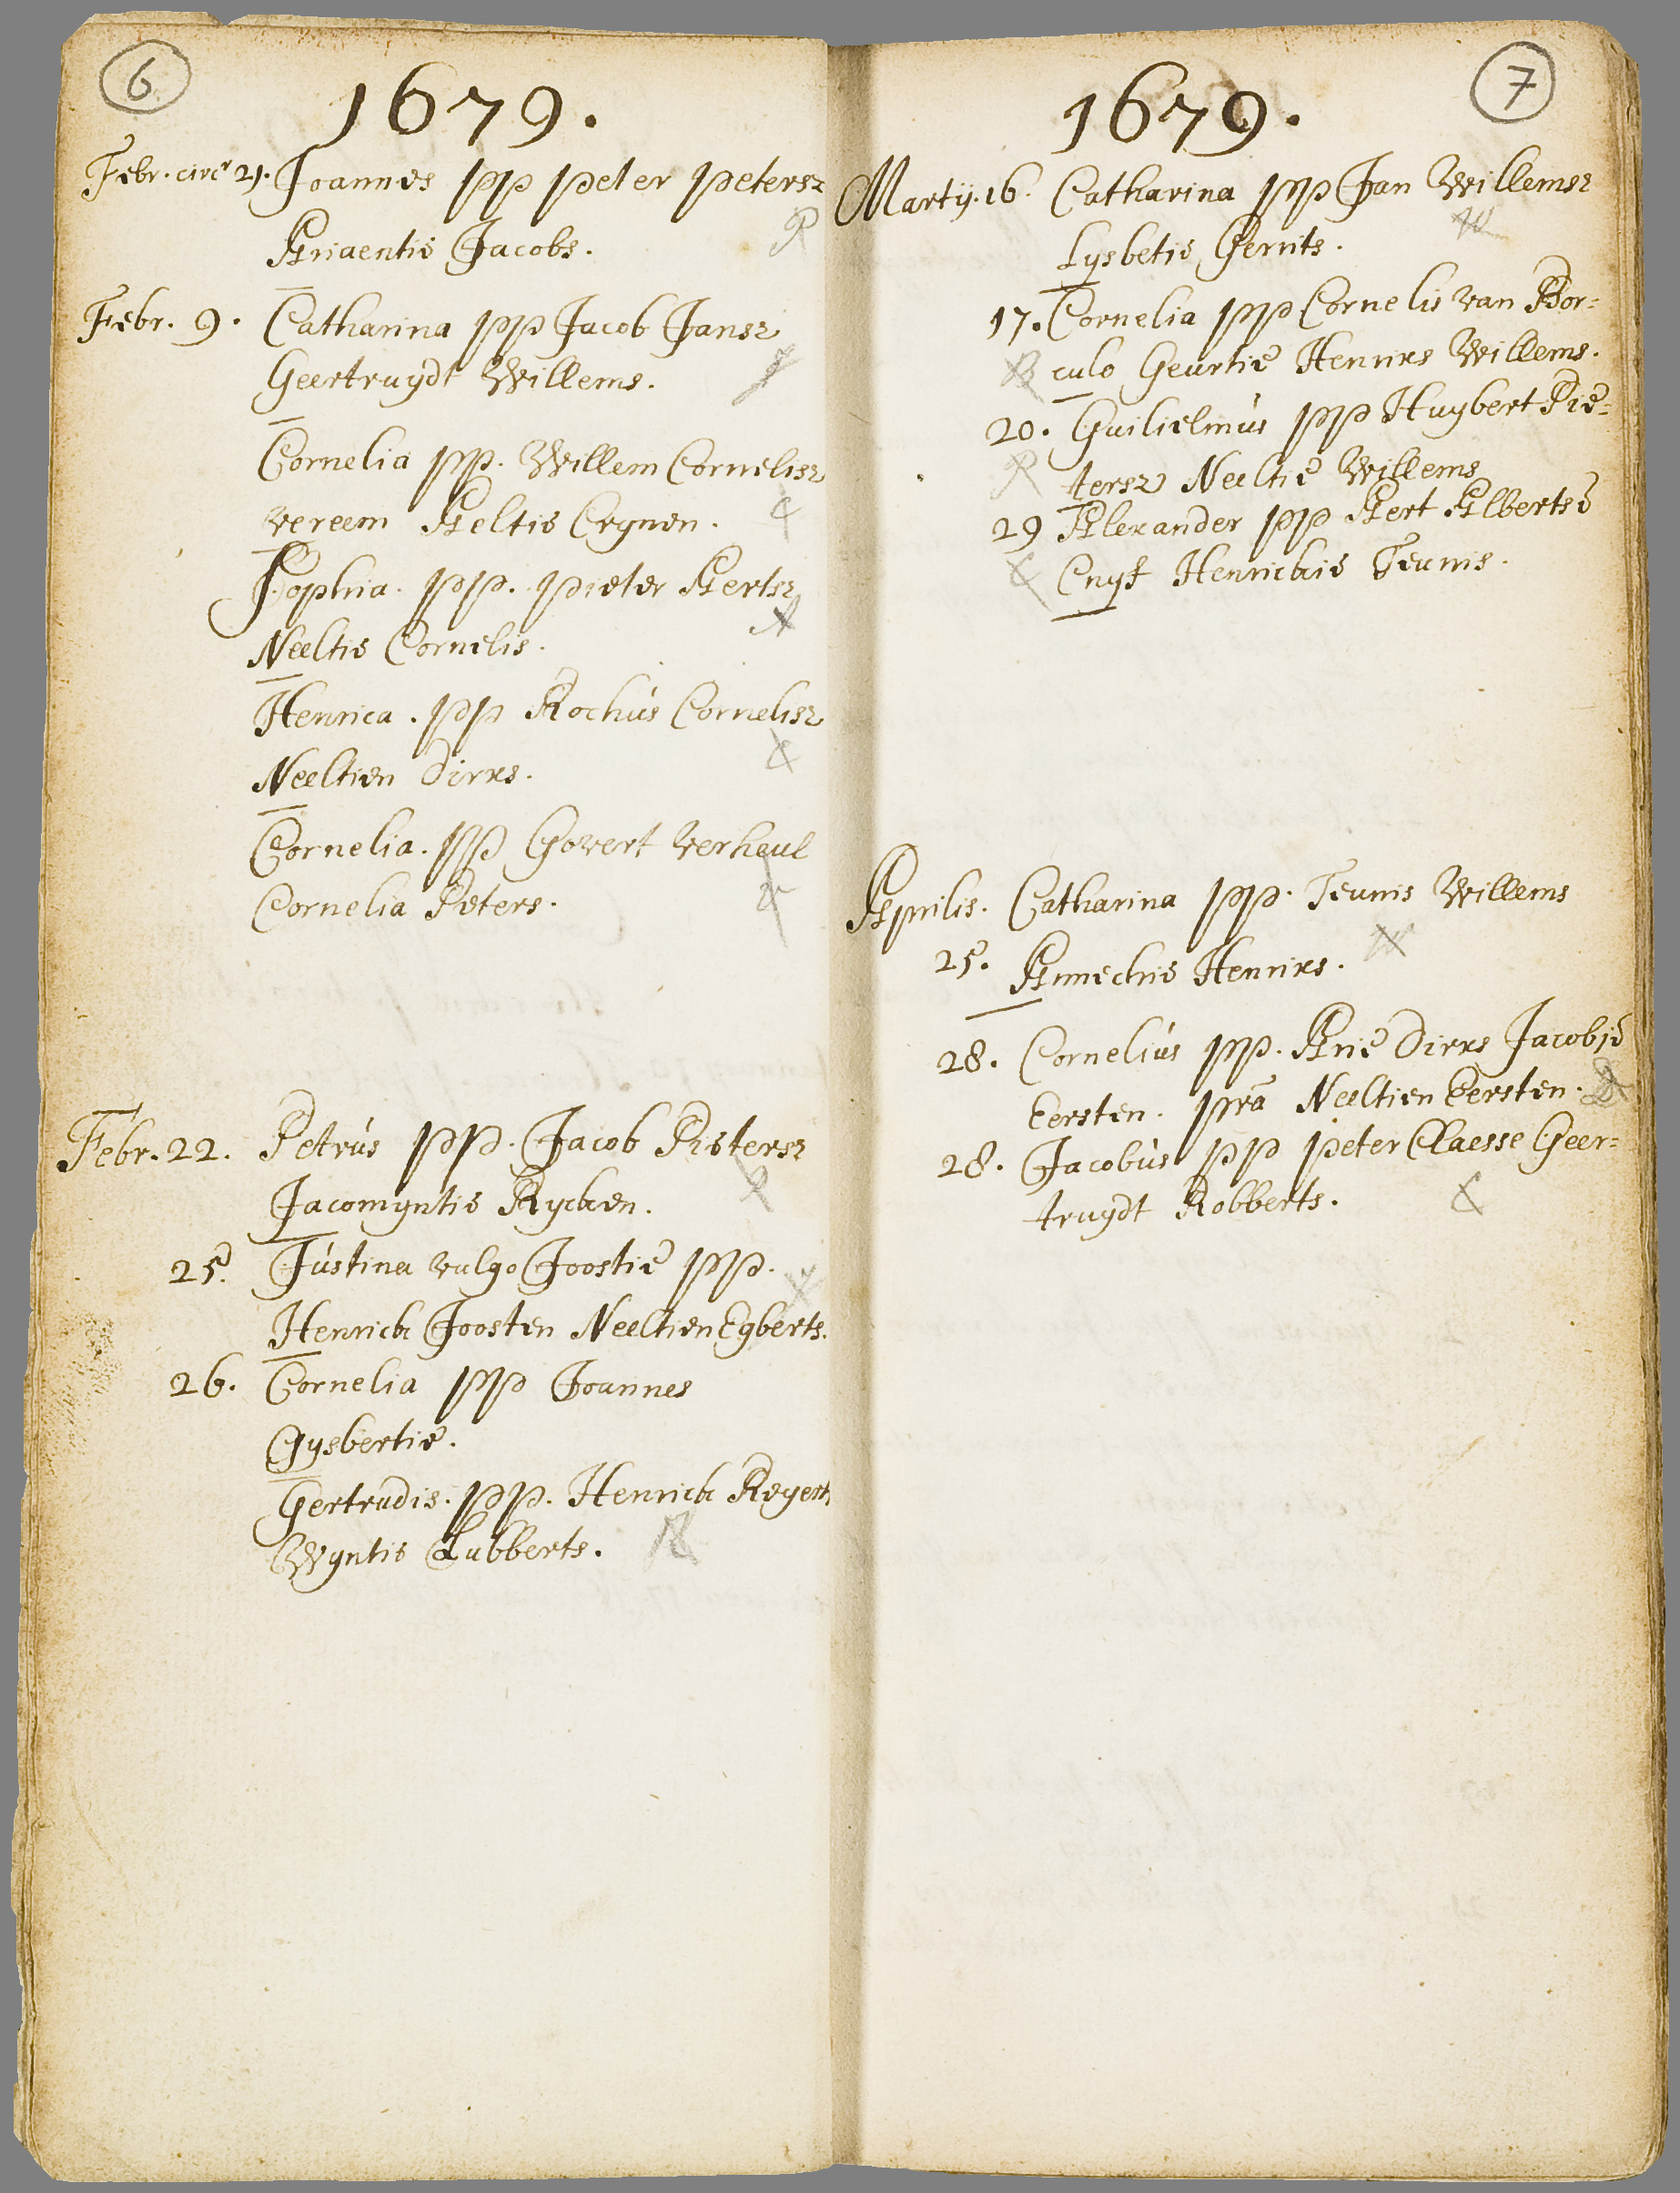 6
1679.
Febr. circ 21. Joannes pp peter petersz
Ariaentie Jacobs.
P
Febr. 9. Catharina pp Jacob Jansz
Geertruydt Willems.
J
Cornelia pp. Willem Cornelisz
vereem Aeltie Crynen.
C
Sophia. pp. pieter Aertsz
A
Neeltie Cornelis.
Henrica. pp Rochús Cornelisz
C
Neeltien Dirxs.
Cornelia. pp Govert verheul
Cornelia Peters.
V
Febr. 22. Petrús pp. Jacob Pietersz
Jacomyntie Rycken.
P
25. Jústina vulgo Joostie pp.
Henrick Joosten Neeltien Egberts.
26. Cornelia pp Joannes
Gysbertie.
Gertrudis. pp. Henrick Reyerts
Wyntie Lubberts.
R
7
1679.
Martij. 16. Catharina pp Jan Willemsz
W
Lysbetie Gerrits.
17. Cornelia pp Cornelis van Bor=
B culo Geurtie Henrixs Willems.
20. Guilielmús pp Huybert Pie=
P tersz Neeltie Willems
29 Alexander pp Aert Albertse
C Cnyf Henrickie Teunis.
Aprilis. Catharina pp. Teunis Willems
W
25. Annechie Henrixs.
28. Corneliús pp. Arie Dirxs Jacobje
Eersten. pra Neeltien Eersten. D
28. Jacobús pp peter Claesse Geer=
truydt Robberts.
C